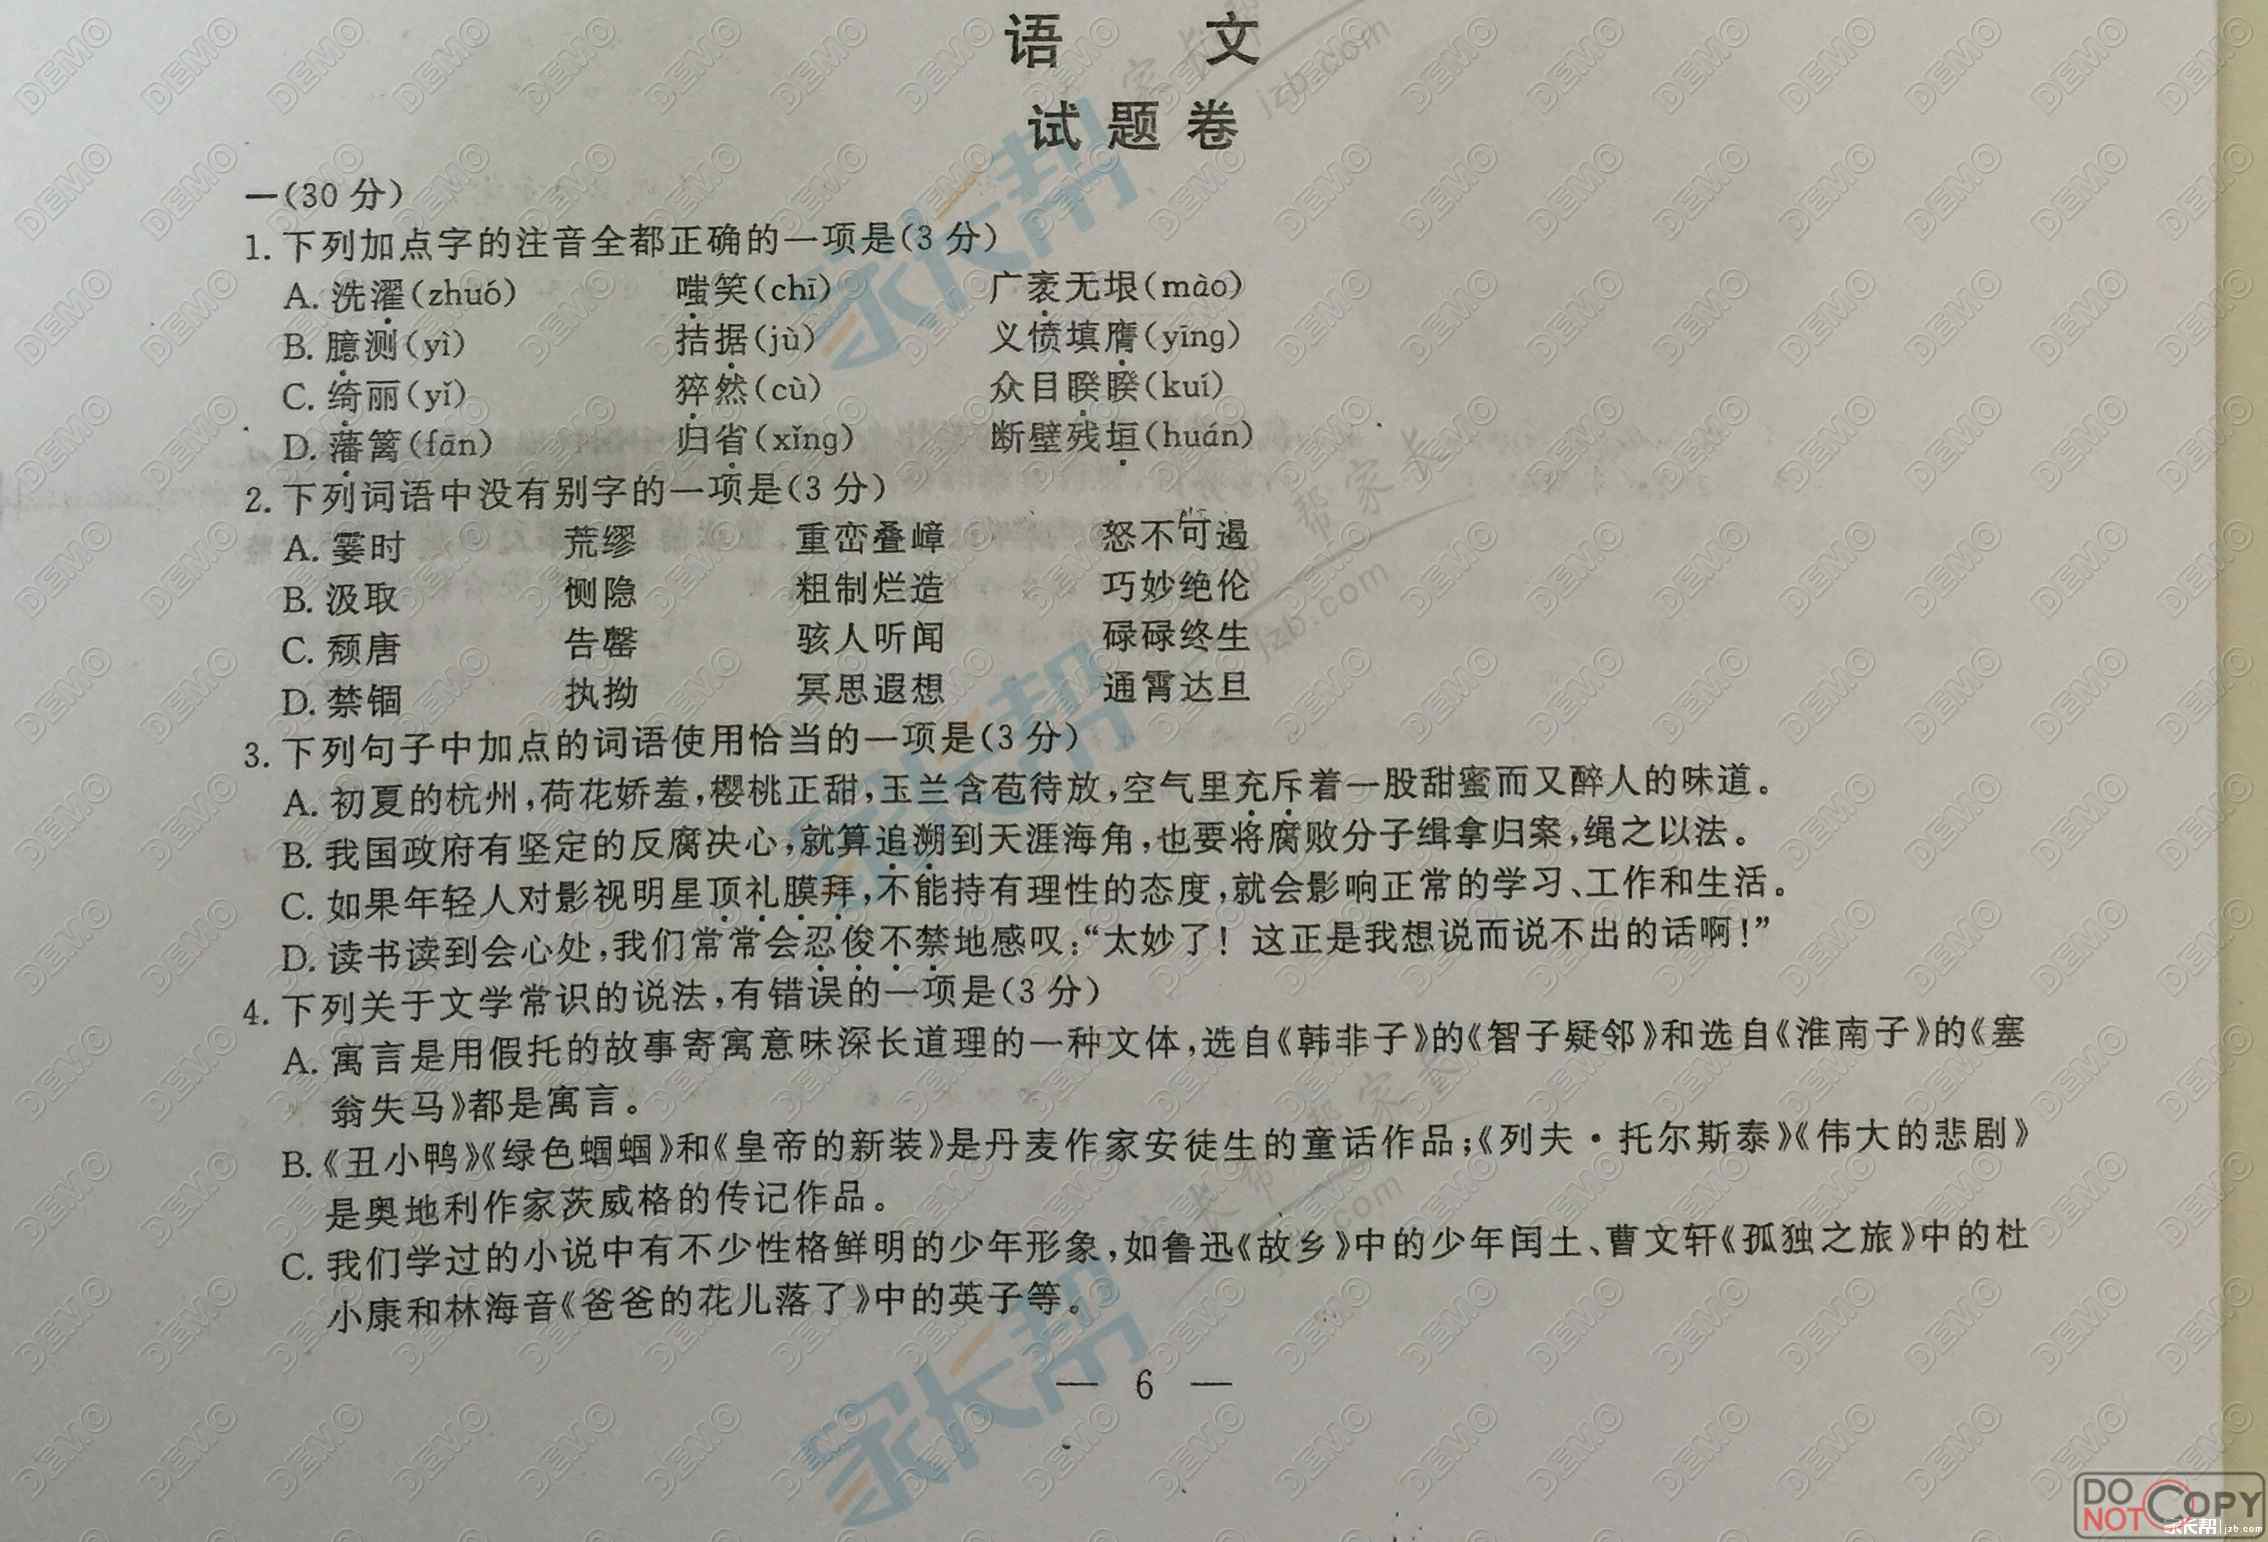 语 文
试题卷
一(30分)
1. 下列加点字的注音全都正确的一项是(3分)
A. 洗濯(zhuó) 嗤笑(chī) 广袤无垠(mào)
B. 臆测(yì) 拮据(jù) 义愤填膺(yīng)
C. 绮丽(yǐ) 猝然(cù) 众目睽睽(kuí)
D. 藩篱(fān) 归省(xǐng) 断壁残垣(huán)
2. 下列词语中没有别字的一项是(3分)
A. 霎时 荒缪 重峦叠嶂 怒不可遏
B. 汲取 恻隐 粗制烂造 巧妙绝伦
C. 颓唐 告罄 骇人听闻 碌碌终生
D. 禁锢 执拗 冥思遐想 通霄达旦
3. 下列句子中加点的词语使用恰当的一项是(3分)
A. 初夏的杭州,荷花娇羞,樱桃正甜,玉兰含苞待放,空气里充斥着一股甜蜜而又醉人的味道。
B. 我国政府有坚定的反腐决心,就算追溯到天涯海角,也要将腐败分子缉拿归案,绳之以法。
C. 如果年轻人对影视明星顶礼膜拜,不能持有理性的态度,就会影响正常的学习、工作和生活。
D. 读书读到会心处,我们常常会忍俊不禁地感叹:“太妙了！这正是我想说而说不出的话啊!”
4. 下列关于文学常识的说法,有错误的一项是(3分)
A. 寓言是用假托的故事寄寓意味深长道理的一种文体,选自《韩非子》的《智子疑邻》和选自《淮南子》的《塞
翁失马》都是寓言。
B.《丑小鸭》《绿色蝈蝈》和《皇帝的新装》是丹麦作家安徒生的童话作品;《列夫·托尔斯泰》《伟大的悲剧》
是奥地利作家茨威格的传记作品。
C. 我们学过的小说中有不少性格鲜明的少年形象,如鲁迅《故乡》中的少年闰土、曹文轩《孤独之旅》中的杜
小康和林海音《爸爸的花儿落了》中的英子等。
— 6 —
DO NOT COPY
家长帮 jzb.com